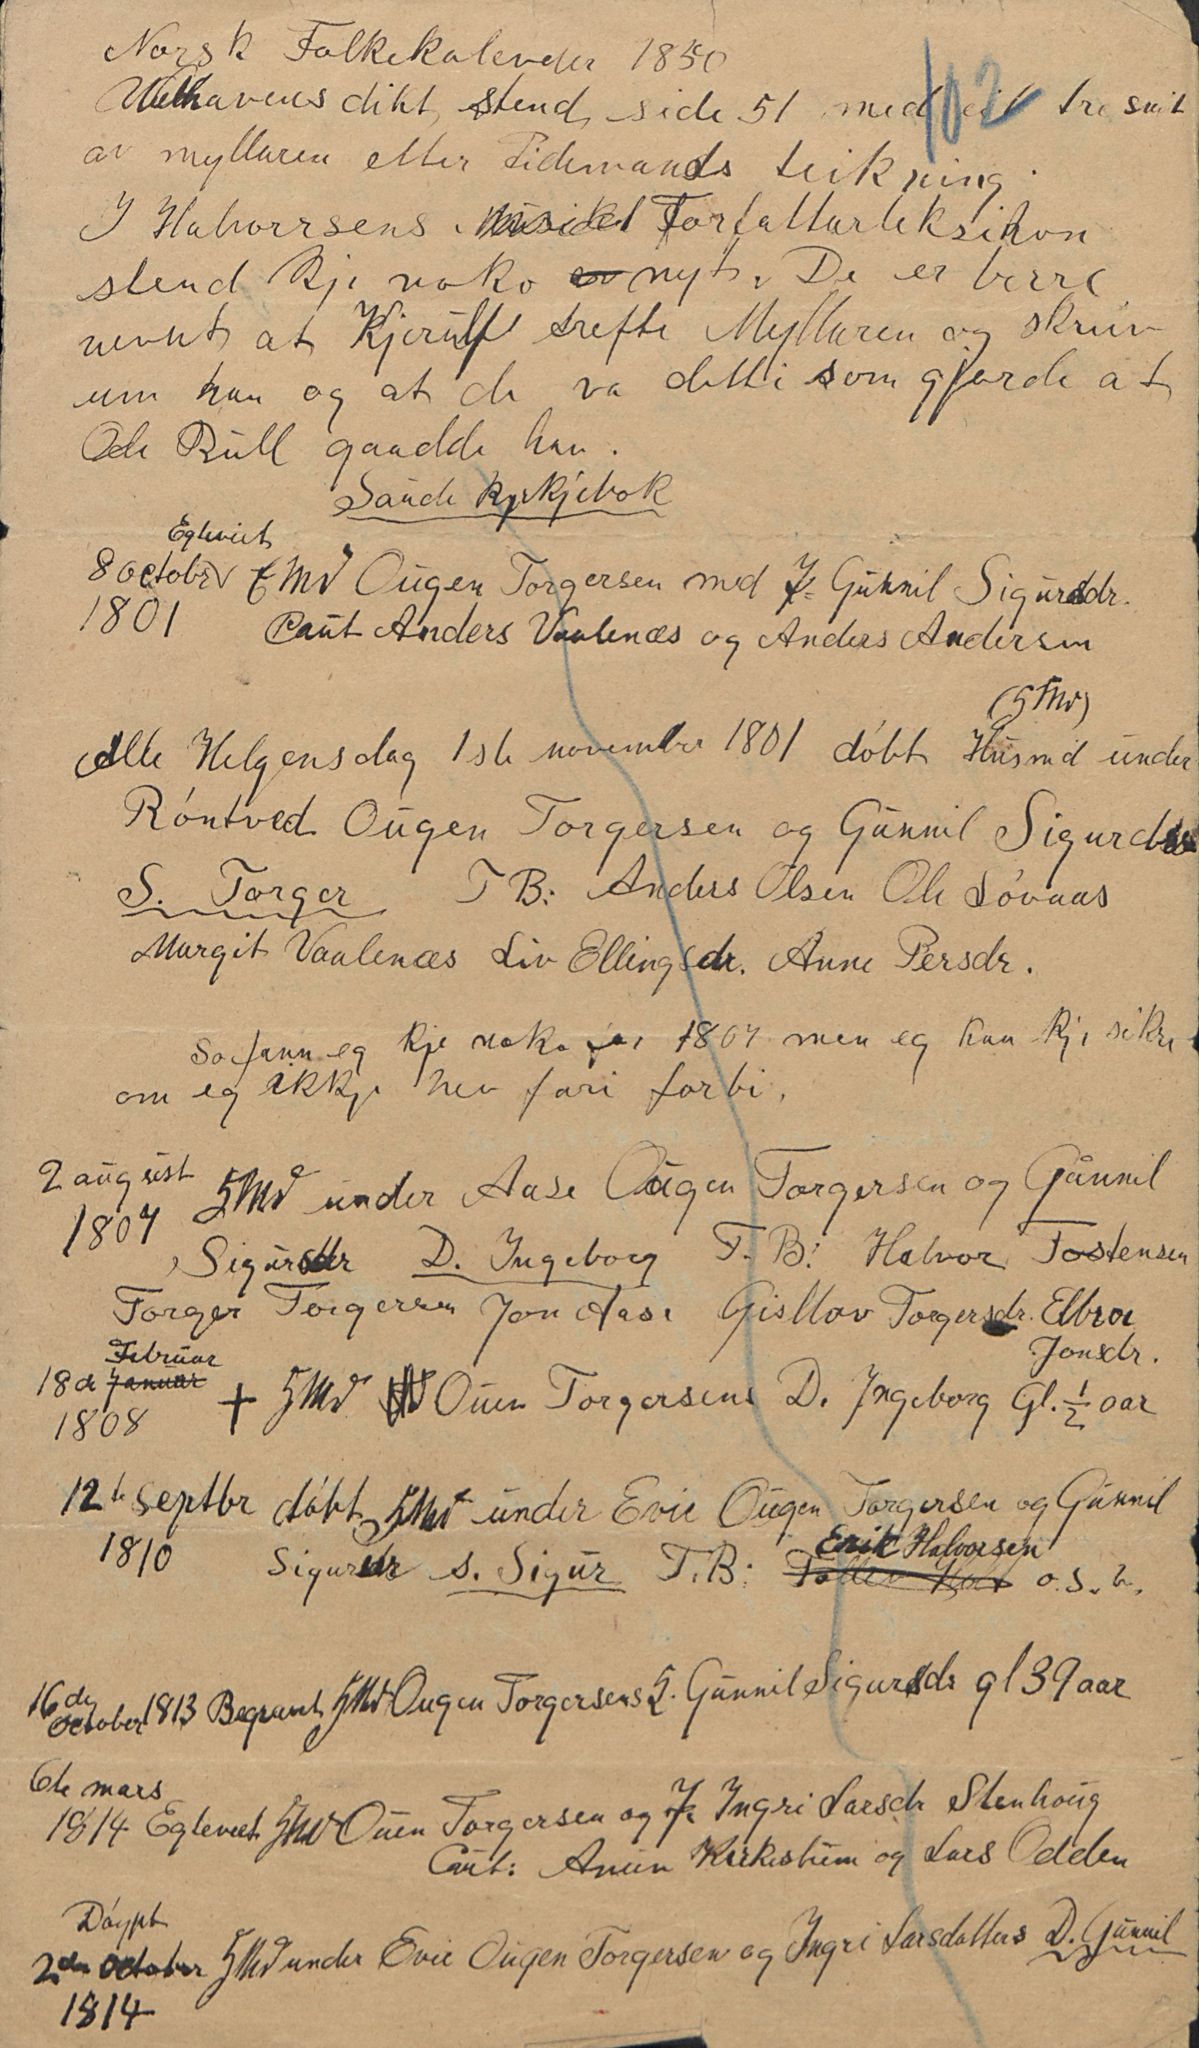 Norsk Folkekalender 1850
102
Welhavens dikt, stend, side 51 med eit tresnit
av myllaren etter Tidemands teikning.
I Halvorsens Forfattarleksikon
stend kje noko nyt. De er berre
nevnt at Kjerulf trefte Myllaren og skreiv
um han og at de va detti som gjorde at
Ole Bull gaadde han.
Saude kyrkjebok
Egteviet
8 octobr HMd Ougen Torgersen med P. Gunnil Sigursdr.
1801 Caut Anders Vaalenæs og Anders Andersen
(HMd)
Alle Helgensdag 1ste november 1801 döbt Husmd under
Röntved Ougen Torgersen og Gunnil Sigurds
S. Torger T B: Anders Olsen Ole Lövaas
Margit Vaalenæs Liv Ellingsdr. Anne Persdr.
So fann eg kje noko för 1807 men eg kan kje sikre
om eg ikkje hev fari forbi.
2 august
1807 HMd under Aase Ougen Torgersen og Gunnil
Sigursdr D. Ingeborg T. B: Halvor Tostensen
Torger Torgersen Jon Aase Gisllov Torgersdr. Elbroe
Jonsdr.
Februar
18de Januar
1808 + HMd Ouen Torgersens D. Ingeborg Gl. ½ aar
12te septbr döbt HMd under Evie Ougen Torgersen og Gunnil
Erik Halvorsen
1810 Sigursdr s. Sigur T.B: o.s.v.
16de
October 1813 Begravet HMd Ougen Torgersens H. Gunnil Sigursdr gl 39 aar
6te mars
1814 Egteviet HMd Ouen Torgersen og P. Ingri Larsdr Stenhoug
Caut: Amun Kirkestuen og Lars Odden
Döypt
2den October HMd under Evie Ougen Torgersen og Ingri Larsdatters D. Gunnil
1814